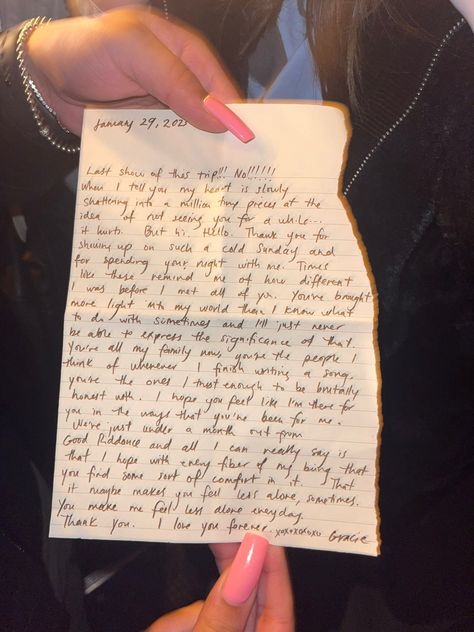 January 29, 202
Last show of this trip!!! No!!!!!!
When I tell you my heart is slowly
shattering into a million tiny pieces at the
idea of not seeing you for a while...
it hurts. But hi. Hello. Thank you for
showing up on such a cold Sunday and
for spending your night with me. Times
like these remind me of how different
I was before I met all of you. You've brought
more light into my world than I know what
to do with sometimes and I'll just never
be able to express the significance of that.
You're all my family now, you're the people I
think of whenever I finish writing a song,
you're the ones I trust enough to be brutally
honest with. I hope you feel like I'm there for
you in the ways that you've been for me.
We're just under a month out from
Good Riddance and all I can really say is
that I hope with every fiber of my being that
you find some sort of comfort in it. That
it maybe makes you feel less alone, sometimes.
You make me feel less alone everyday.
Thank you. I love you forever. xoxoxoxoxo Gracie